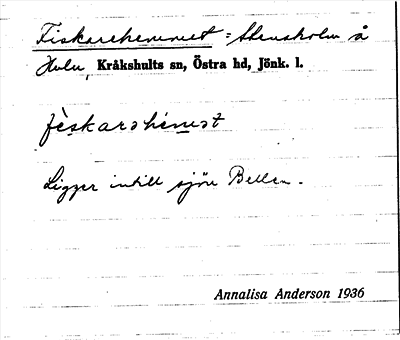 Fiskarehemmet = Stensholm å
Hulu, Kråkshults sn, Östra hd, Jönk. l.
fèskarəhémət
Ligger intill sjön Bellen.
Annalisa Anderson 1936